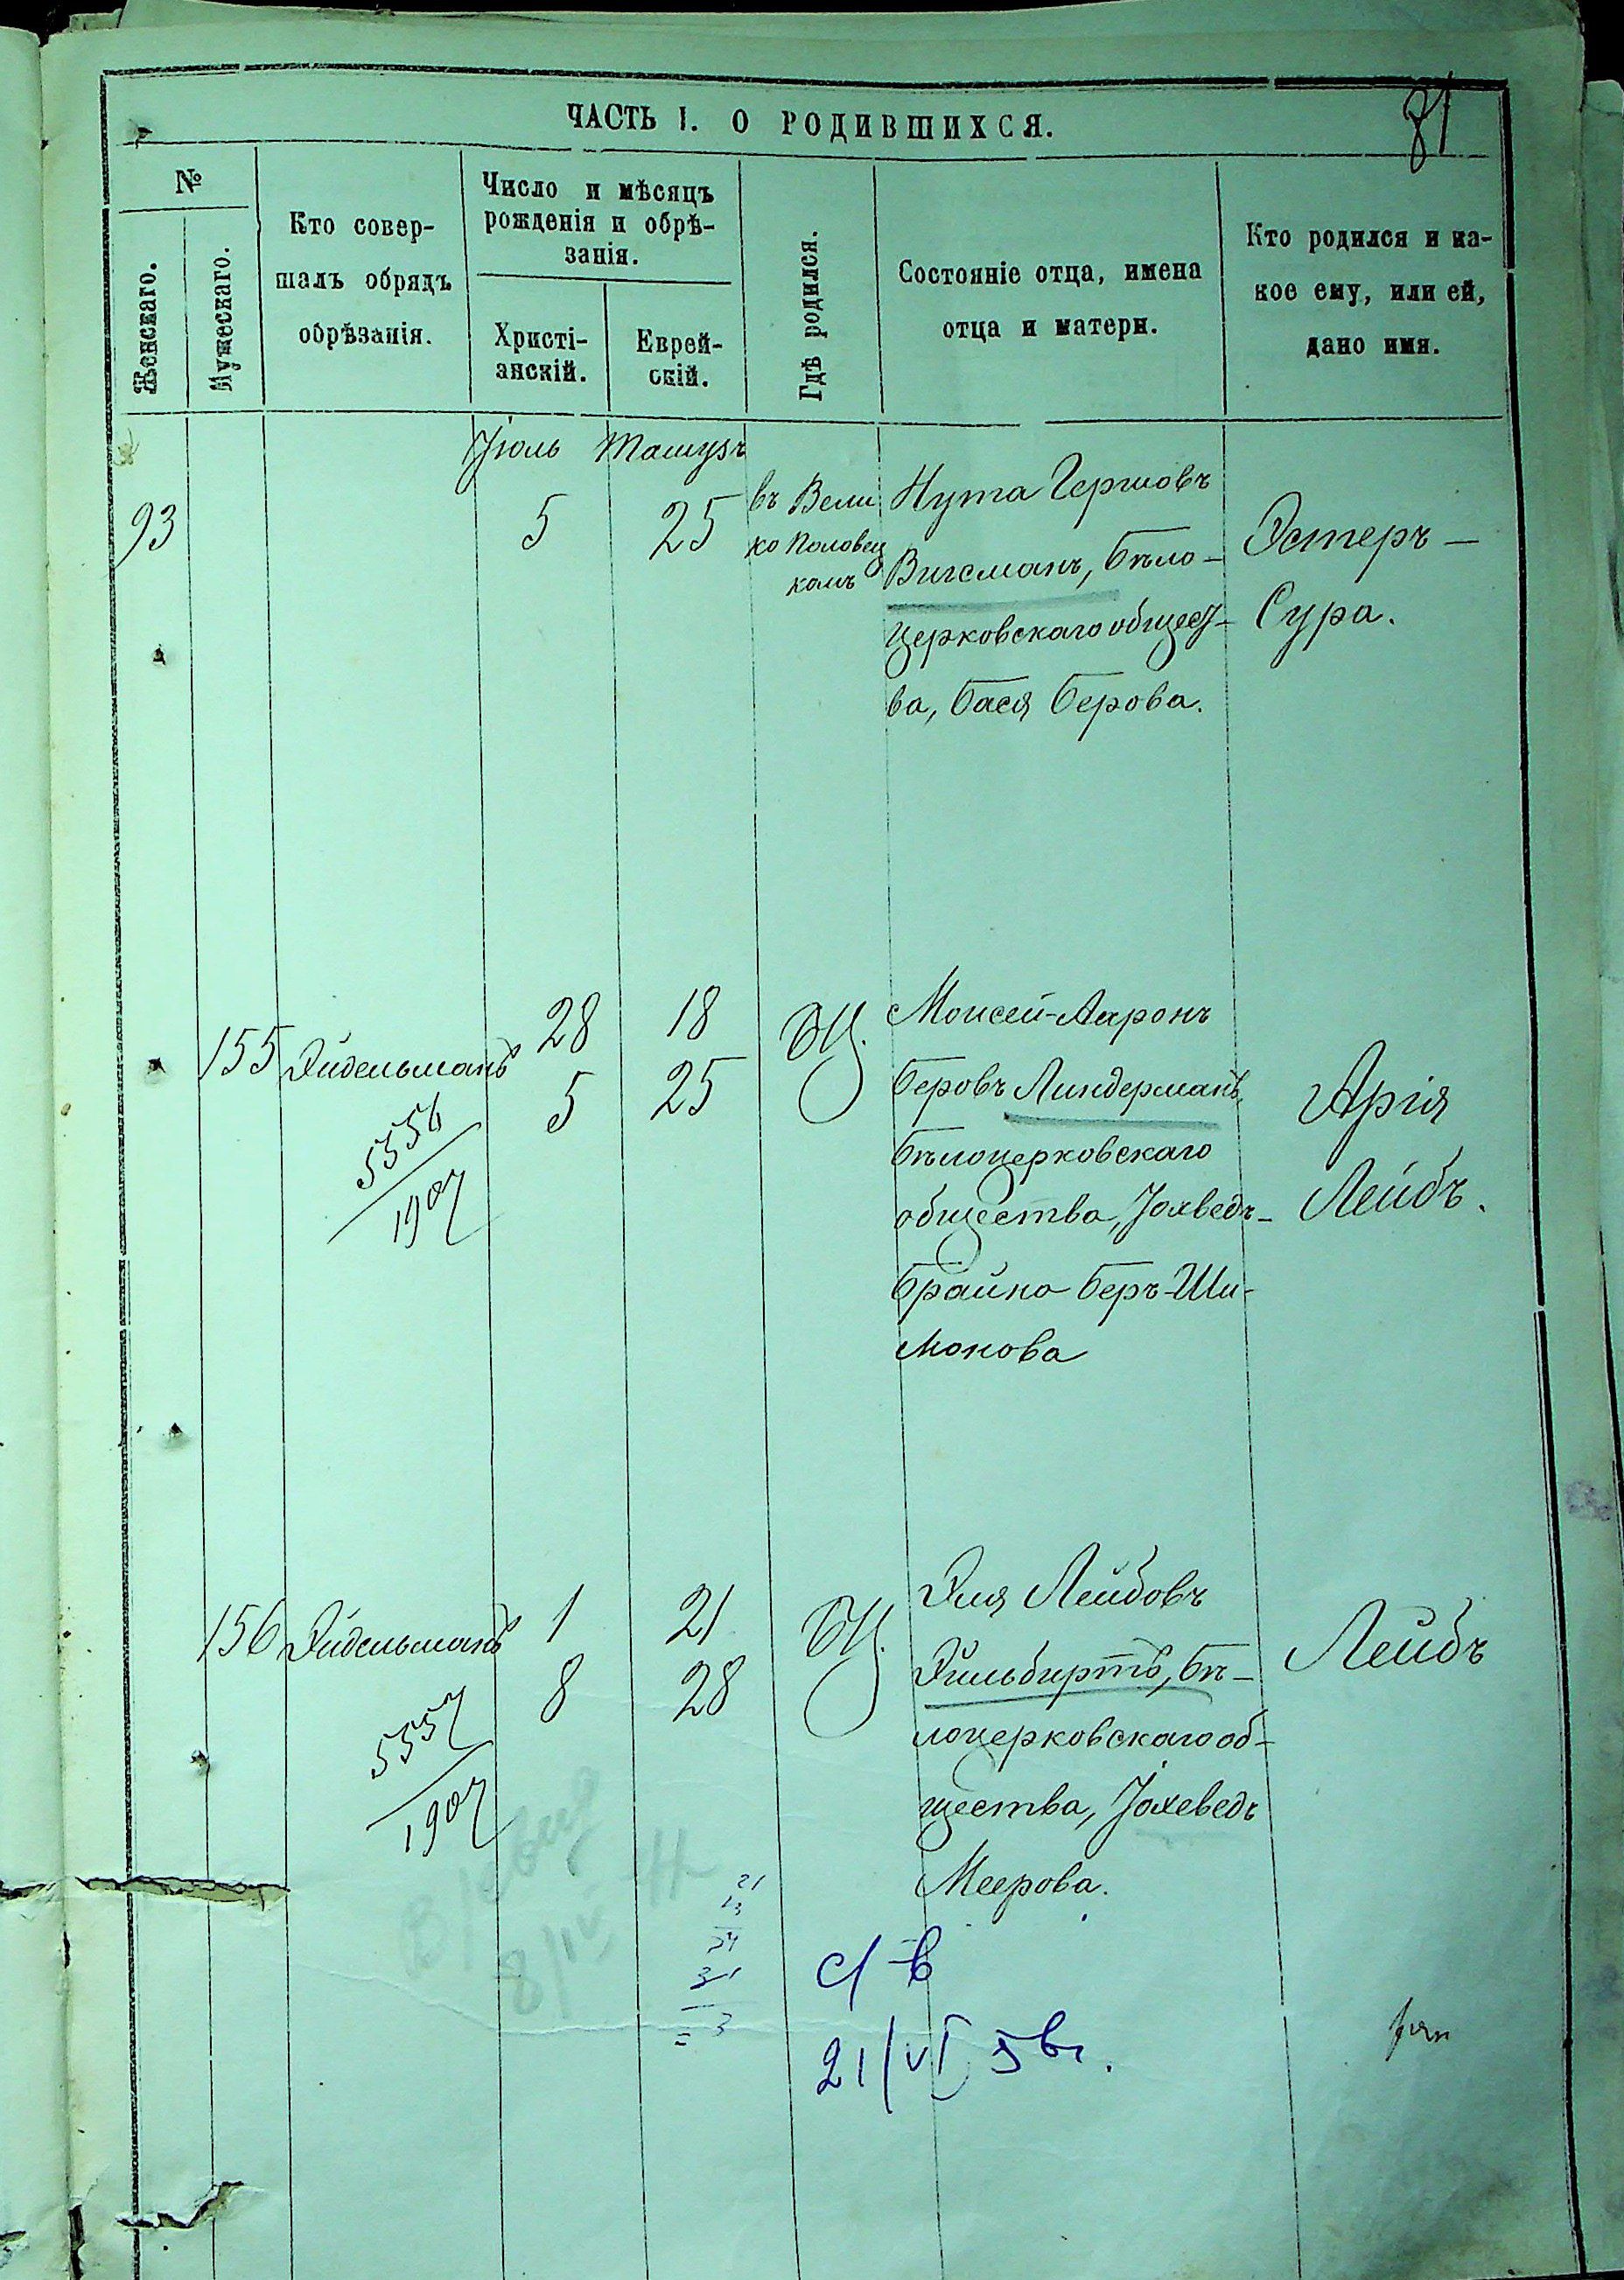 ЧАСТЬ I. О РОДИВШИХСЯ.
81
№
Женскаго.
Мужескаго.
Кто совер-
шалъ обрядъ
обрѣзанія.
Число и мѣсяцъ
рожденія и обрѣ-
занія.
Христі-
анскій.
Еврей-
скій.
Гдѣ родился.
Состояніе отца, имена
отца и матери.
Кто родился и ка-
кое ему, или ей,
дано имя.
Іюль Тамузъ
93
5
25
въ Вели
ко Половец
комъ
Нута Гершовъ
Вигсманъ, бѣло-
церковскаго общест-
ва, Бася Берова.
Эстеръ-
Сура.
155
Эйдельманъ
28
5
18
25
БЦ.
Моисей-Ааронъ
Беровъ Линдерманъ,
бѣлоцерковскаго
общества, Іохведъ-
Брайна Беръ-Ши-
монова
Арія
Лейбъ.
5556
1907
156
Эйдельманъ
1
8
21
28
БЦ.
Эля Лейбовъ
Эйльбиртъ, бѣ-
лоцерковскаго об-
щества, Іохеведъ
Меерова.
Лейбъ
5557
1907
21/VI 5